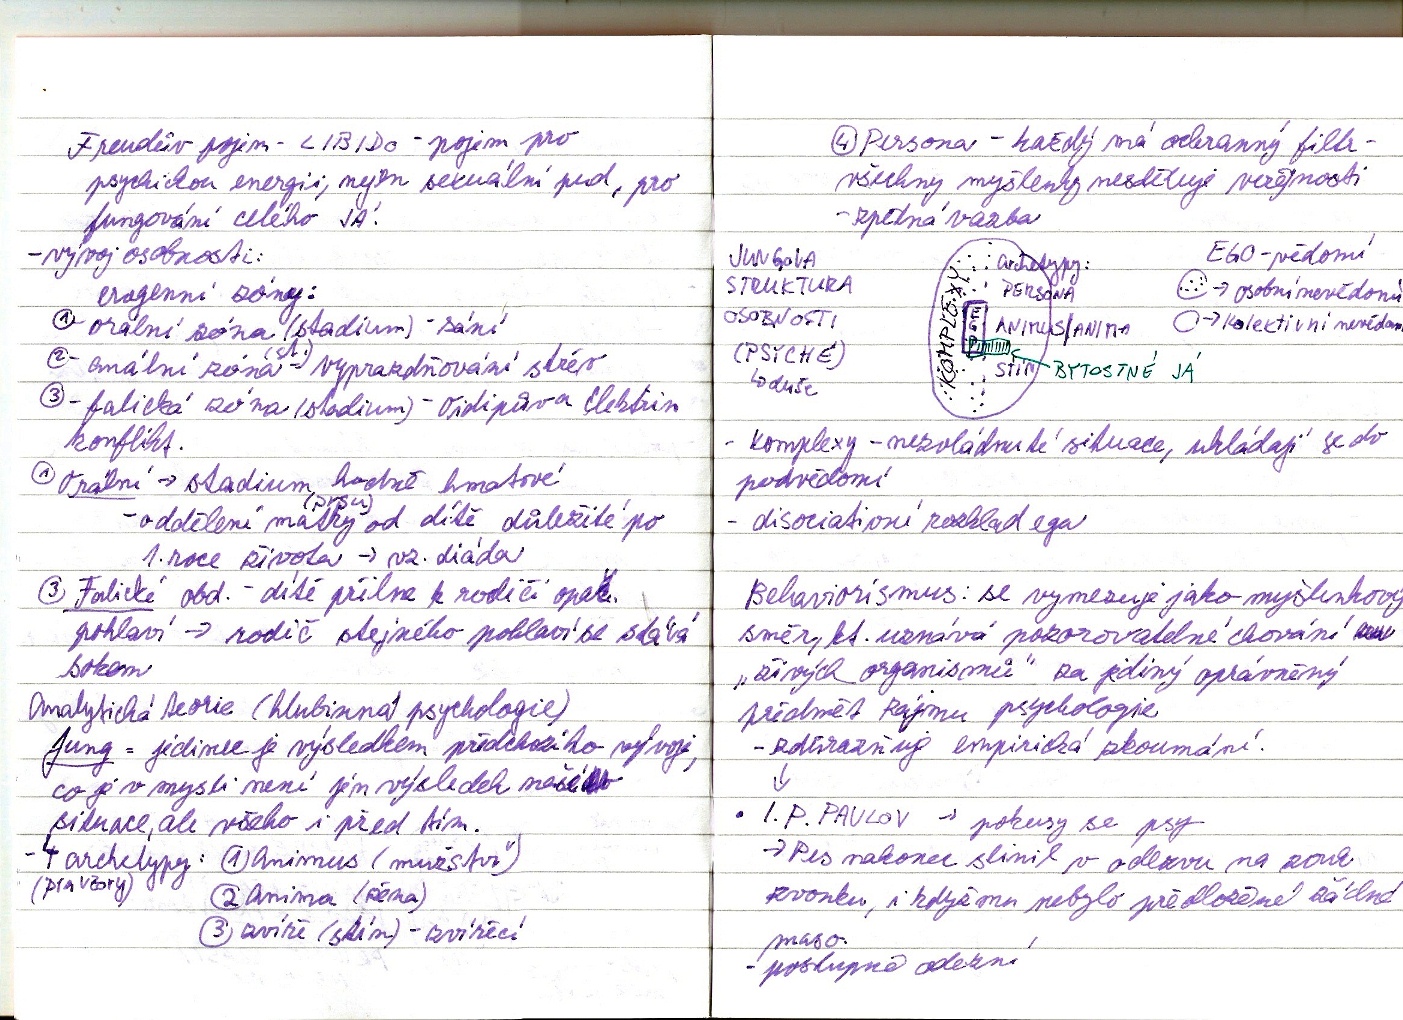 Freudův pojem - LIBIDO - pojem pro
psychickou energii, nejen sexuální pud, pro
fungování celého JÁ.
- vývoj osobnosti:
erogenní zóny:
① - orální zóna (stadium) - sání
② - anální zóna (st.) - vyprazdňování střev
③ - falická zóna (stadium) - Oidipův a Elektřin
konflikt.
① Orální → stadium hodně hmatové
- oddělení matky (prsu) od dítě důležité po
1. roce života → vz. diáda
③ Falické obd. - dítě přilne k rodiči opač.
pohlaví → rodič stejného pohlaví se stává
sokem
Analytická teorie (hlubinná psychologie)
Jung = jedinec je výsledkem předchozího vývoje,
co je v mysli není jen výsledek naší
situace, ale všeho i před tím.
- 4 archetypy: ① Animus (mužství)
(pravzory) ② Anima (žena)
③ zvíře (stín) - zvířecí
④ Persona - každý má ochranný filtr -
všechny myšlenky nesděluje veřejnosti
- zpětná vazba
JUNGOVA
STRUKTURA
OSOBNOSTI
(PSYCHÉ)
↳ duše
KOMPLEXY
archetypy:
PERSONA
ANIMUS/ANIMA
STÍN
BYTOSTNÉ JÁ
EGO - vědomí
→ osobní nevědomí
→ kolektivní nevědom
- komplexy - nezvládnuté situace, ukládají se do
podvědomí
- disociativní rozklad ega
Behaviorismus: se vymezuje jako myšlenkový
směr, kt. uznává pozorovatelné chování
„živých organismů" za jediný oprávněný
předmět zájmu psychologie
- zdůrazňuje empirická zkoumání.
↓
• I. P. PAVLOV → pokusy se psy
→ Pes nakonec slinil v odezvu na zvuk
zvonku, i když mu nebylo předložené žádné
maso.
- postupné odezní